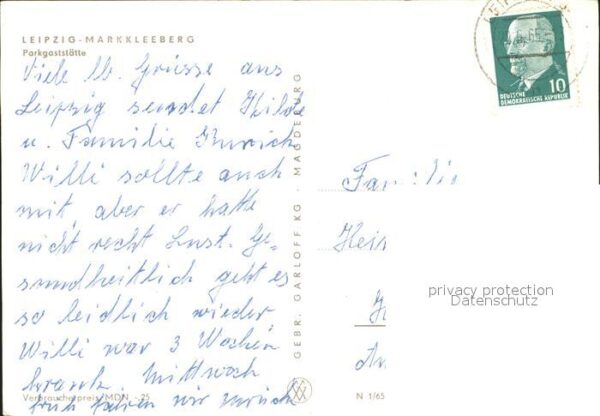 LEIPZIG-MARKKLEEBERG
Parkgaststätte
Viele lb. Grüsse aus
Leipzig sendet Hilde
u. Familie
Willi sollte auch
mit, aber er hatte
nicht recht Lust. Ge-
sundheitlich geht es
so leidlich wieder
Willi war 3 Wochen
krank. Mittwoch
früh fahren wir zurück
Verbraucherpreis MDN -,25
GEBR. GARLOFF KG · MAGDEBURG
10
DEUTSCHE
DEMOKRATISCHE REPUBLIK
Familie
Hein
privacy protection
Datenschutz
N 1/65